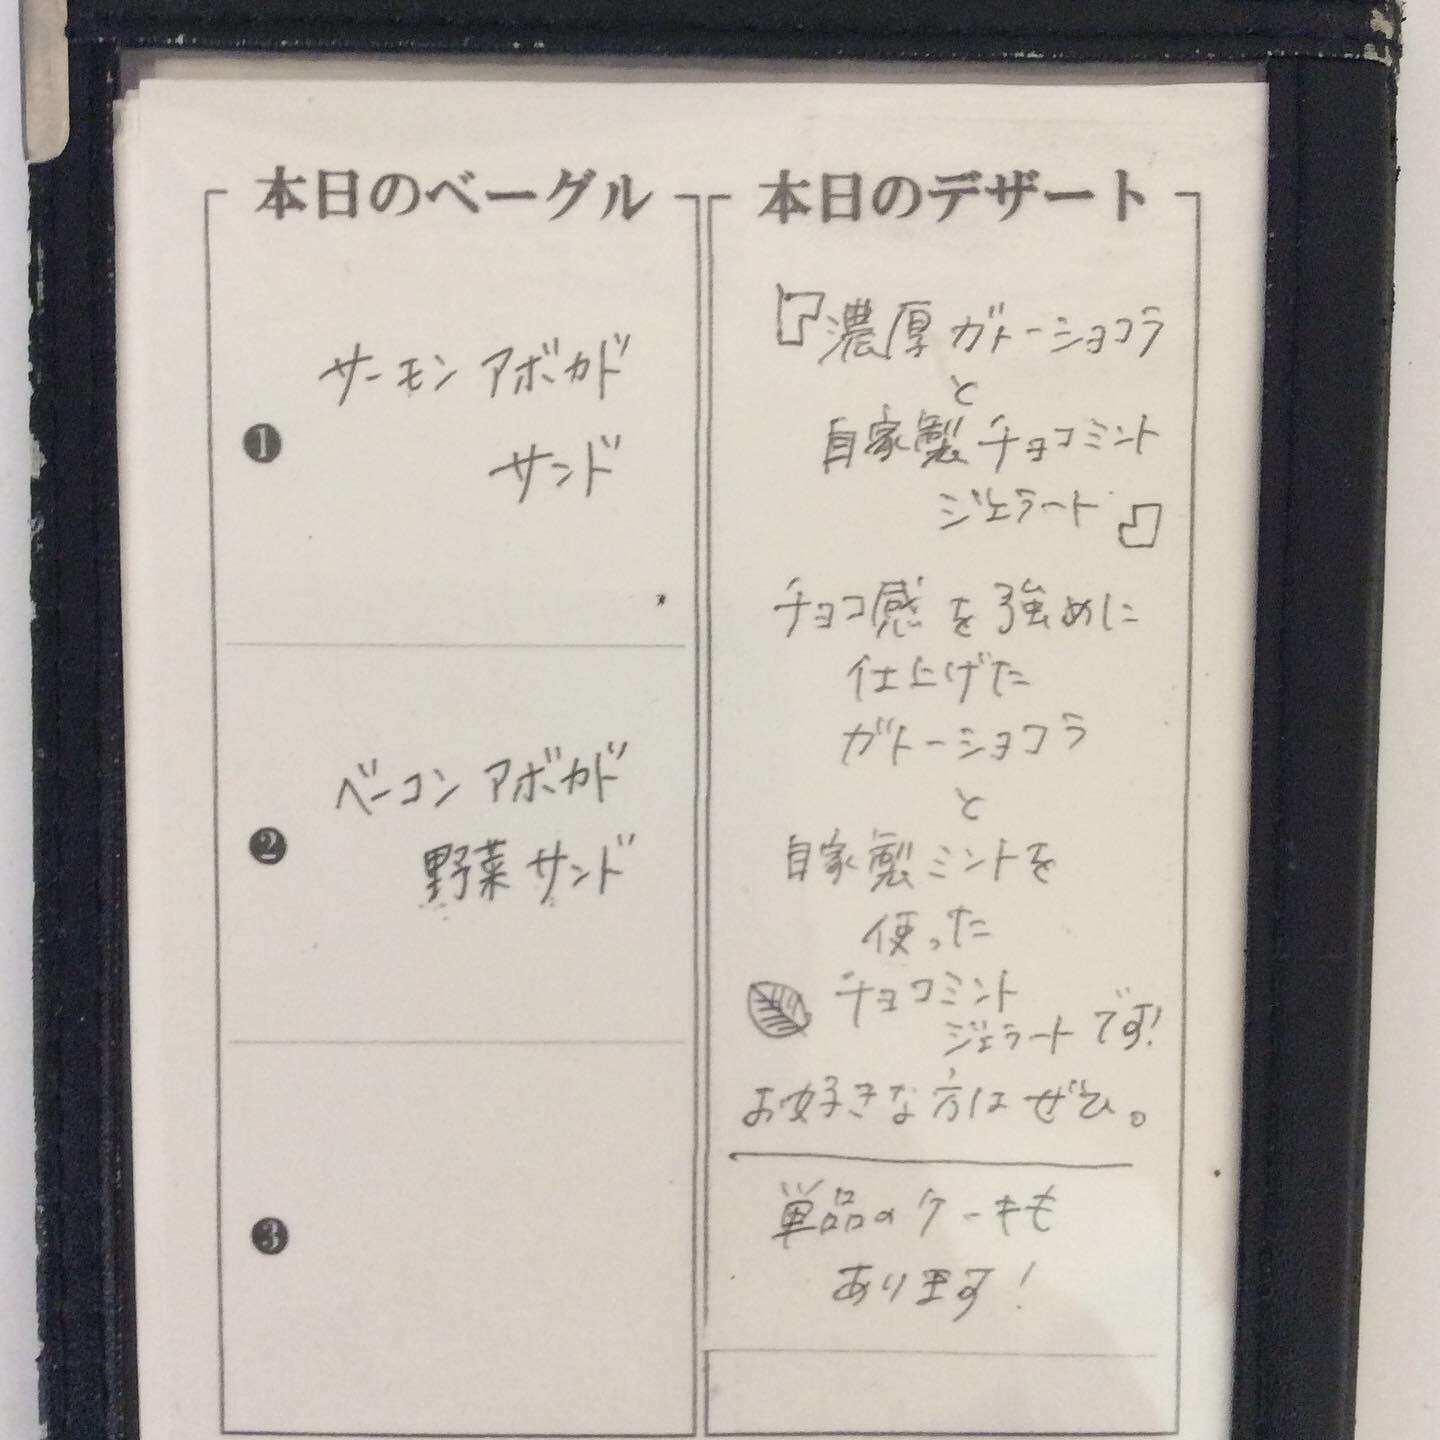 本日のベーグル
❶
サーモン アボカド
サンド
❷
ベーコン アボカド
野菜サンド
❸
本日のデザート
『濃厚ガトーショコラ
と
自家製チョコミント
ジェラート』
チョコ感を強めに
仕上げた
ガトーショコラ
と
自家製ミントを
使った
チョコミント
ジェラートです!
お好きな方はぜひ。
単品のケーキも
あります!